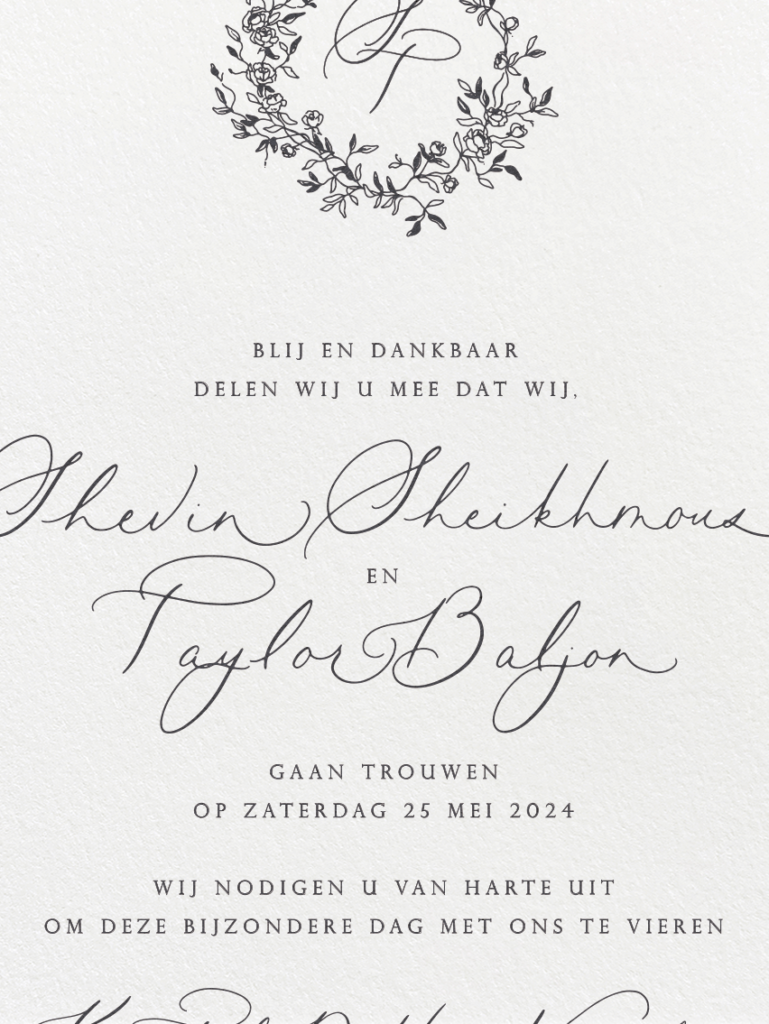 BLIJ EN DANKBAAR
DELEN WIJ U MEE DAT WIJ,
Shevin Sheikhmous
EN
Taylor Baljon
GAAN TROUWEN
OP ZATERDAG 25 MEI 2024
WIJ NODIGEN U VAN HARTE UIT
OM DEZE BIJZONDERE DAG MET ONS TE VIEREN